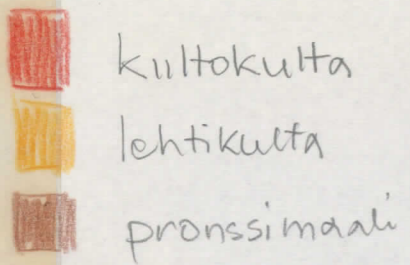 kiiltokulta
lehtikulta
pronssimaali